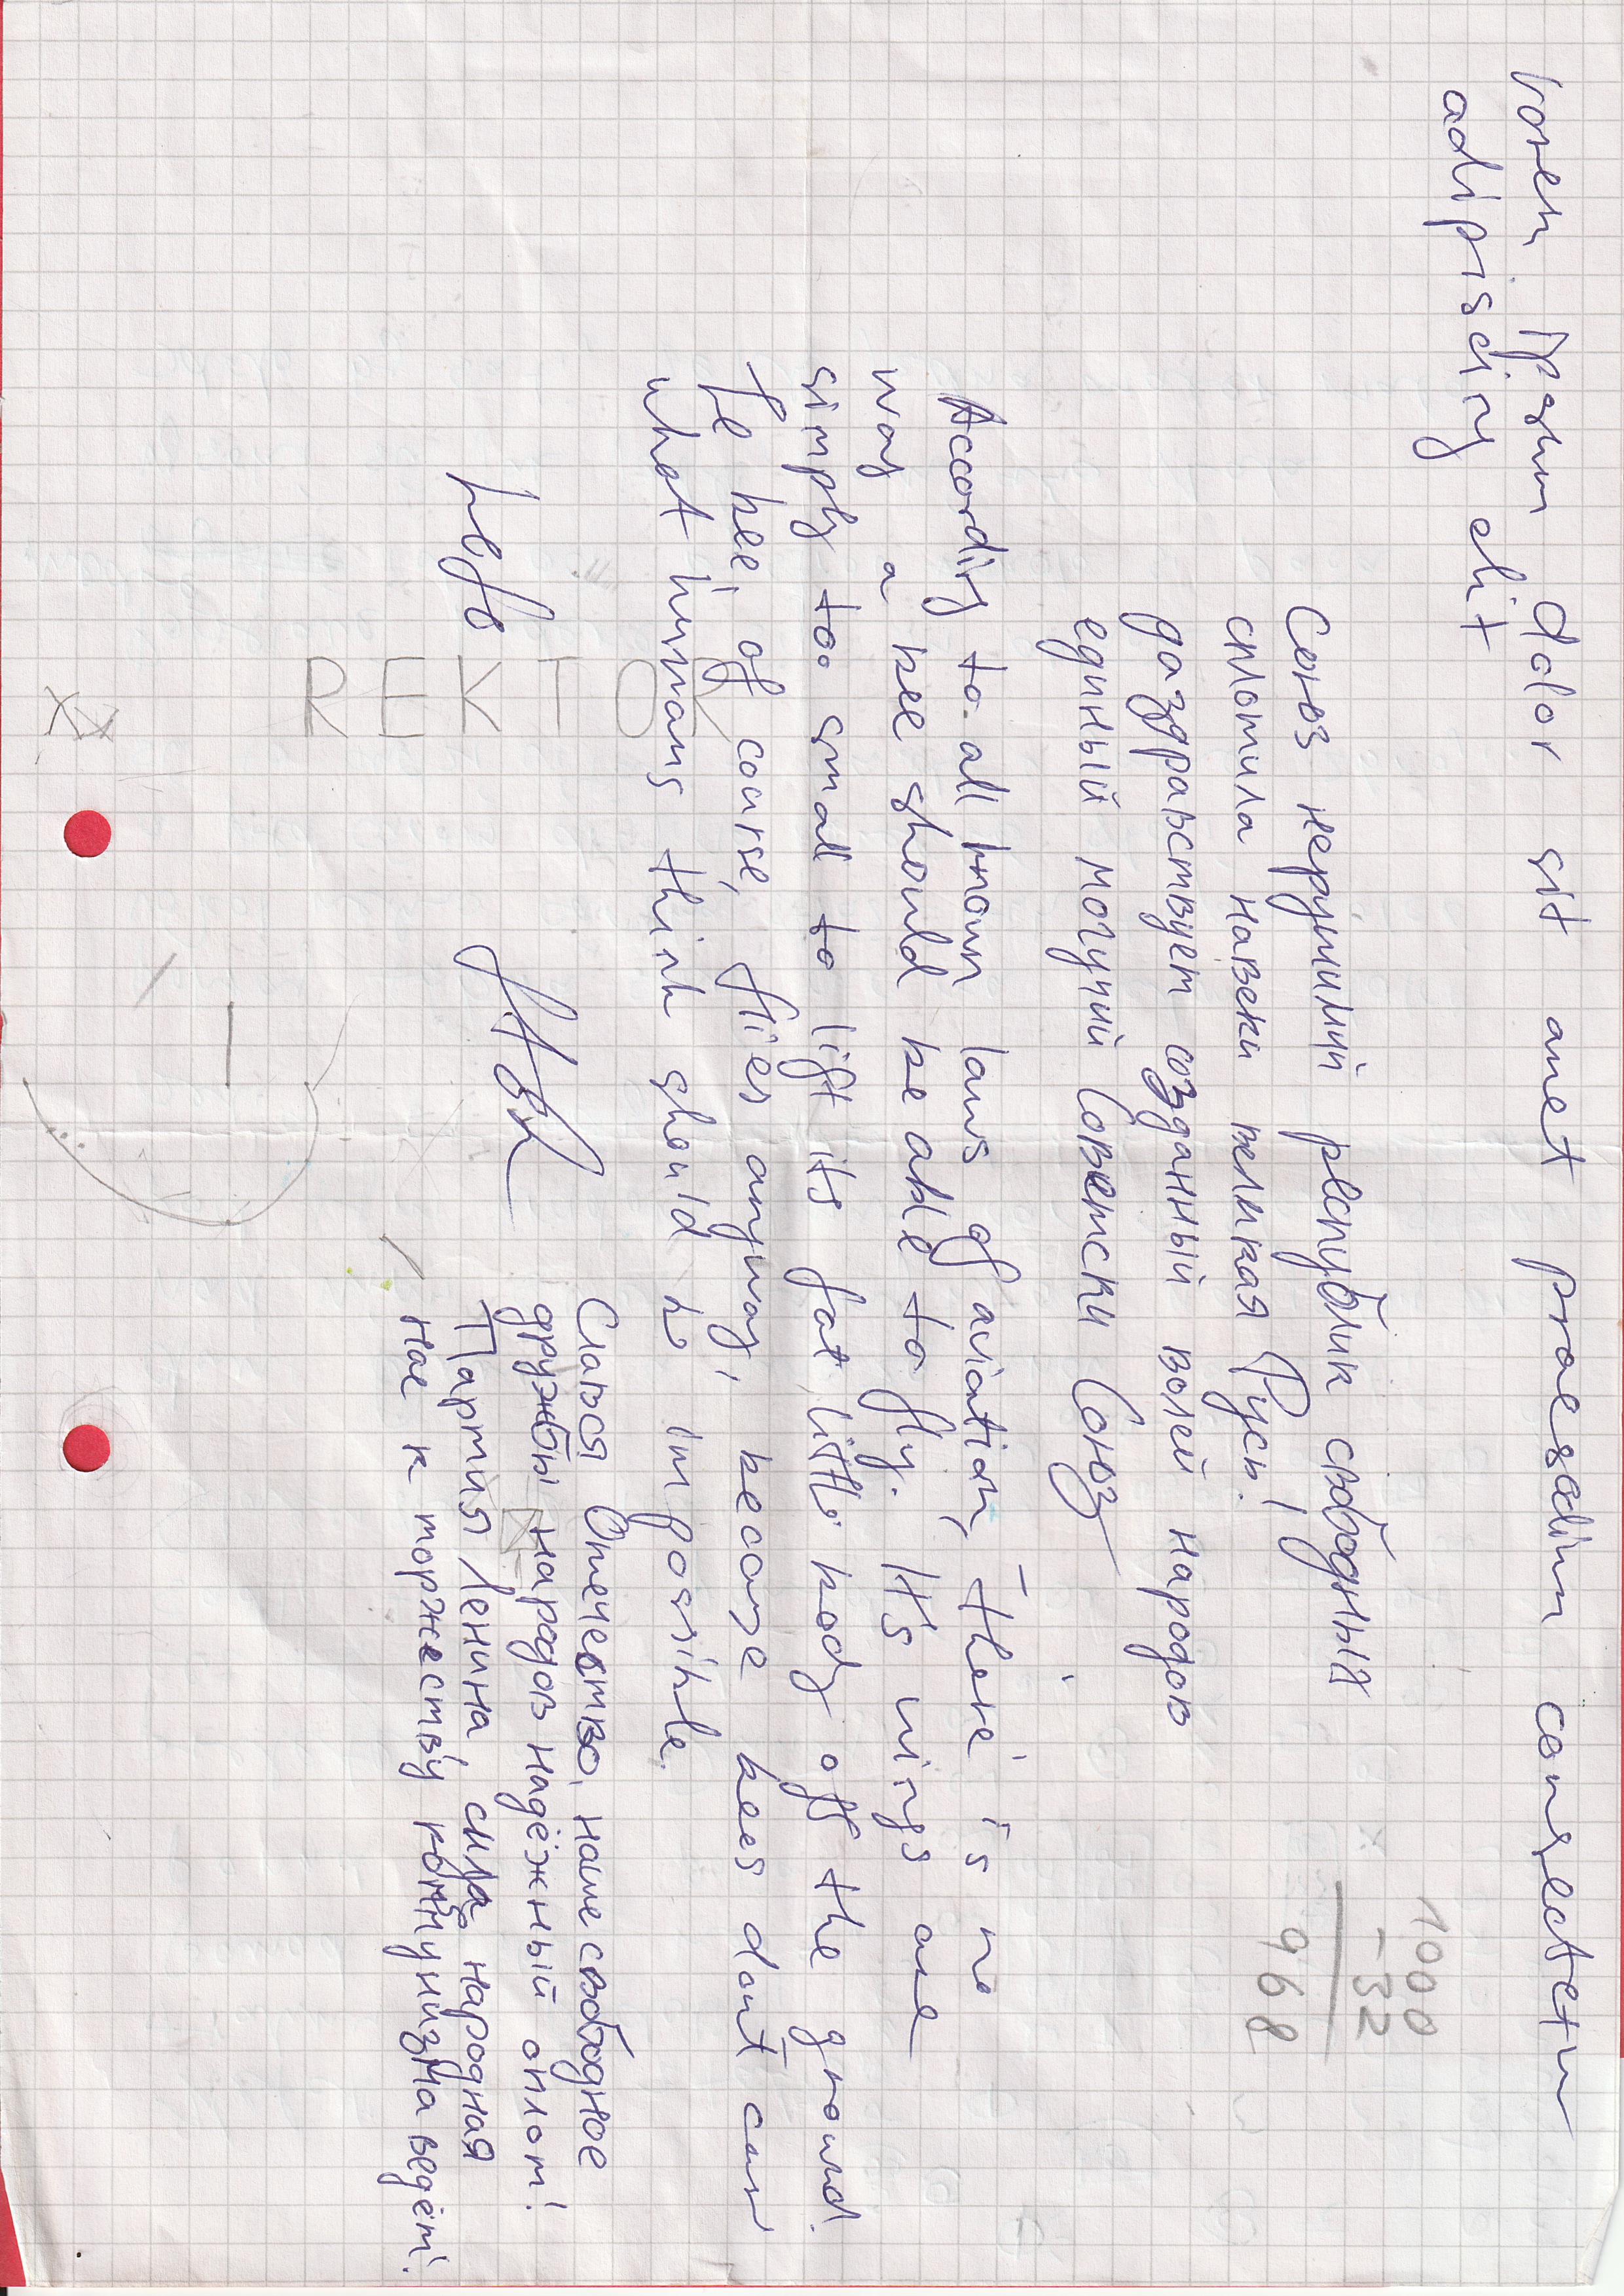 Lorem ipsum dolor sit amet praesadium consectetur
adipiscing elit
1000
-32
968
Союз нерушимый республик свободных
сплотила навеки великая Русь!
да здравствует созданный волей народов
единый могучий Советски Союз
According to all known laws of aviation, there is no
way a bee should be able to fly. It's wings are
simply too small to lift its fat little body off the ground.
The bee, of course, flies anyway, because bees don't care
what humans think should be impossible.
Славься Отечество, наше свободное
дружбы народов надёжный оплот!
Партия Ленина сила народная
нас к торжеству коммунизма ведёт!
REKTOR